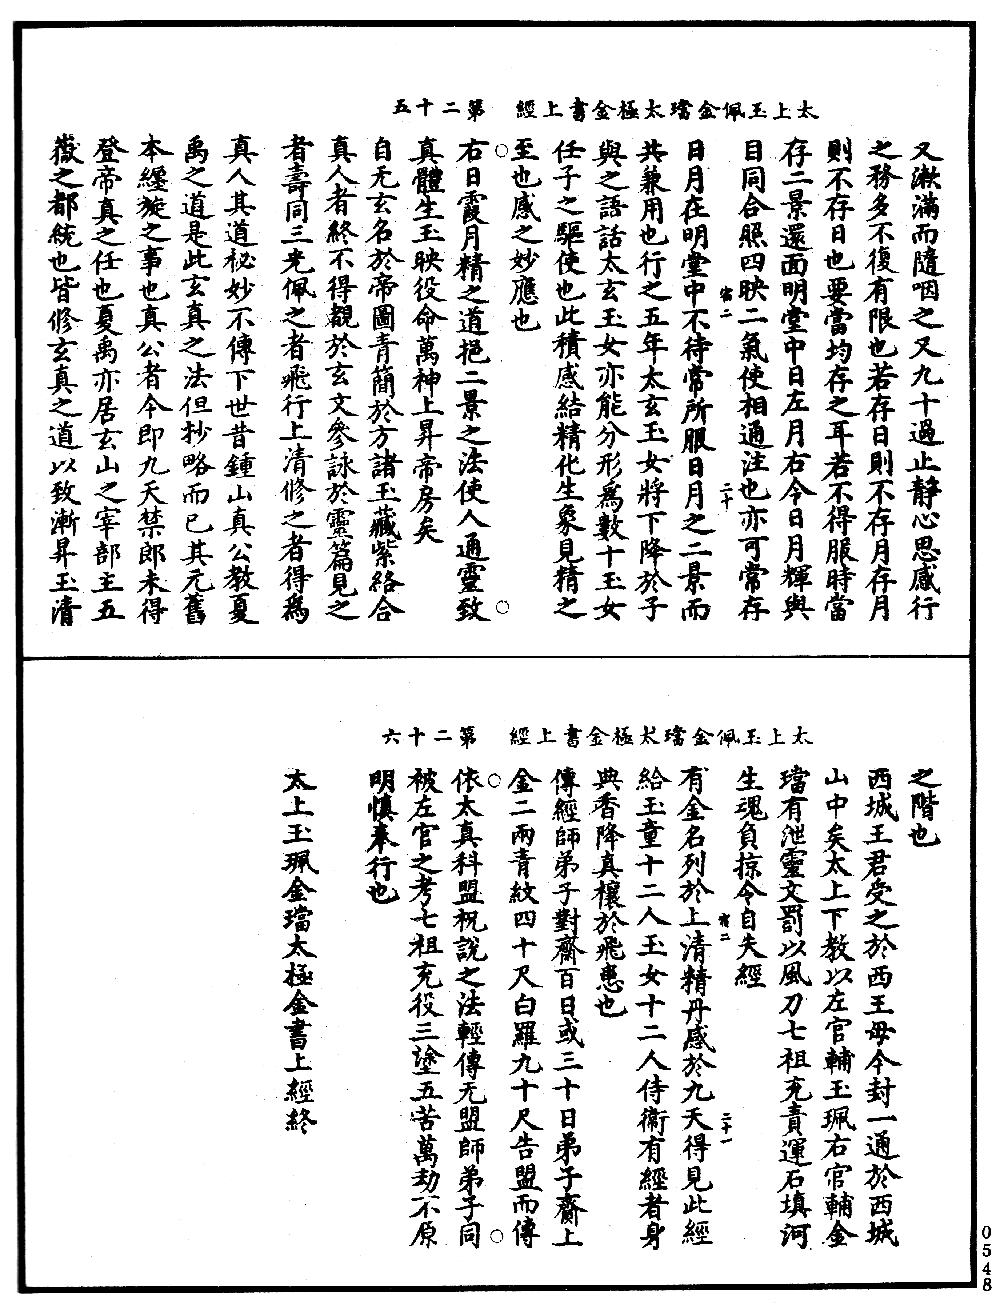 太上玉佩金璫太極金書上經　第二十五
又漱滿而隨咽之又九十過止靜心思感行
之務多不復有限也若存日則不存月存月
則不存日也要當均存之耳若不得服時當
存二景還面明堂中日左月右今日月輝與
目同合照四映二氣使相通注也亦可常存
宿二　二十
日月在明堂中不待常所服日月之二景而
共兼用也行之五年太玄玉女將下降於子
與之語話太玄玉女亦能分形為數十玉女
任子之驅使也此積感結精化生象見精之
至也感之妙應也
右日霞月精之道挹二景之法使人通靈致
真體生玉映役命萬神上昇帝房矣
自无玄名於帝圖青簡於方諸玉藏紫絡合
真人者終不得覩於玄文參詠於靈篇見之
者壽同三光佩之者飛行上清修之者得為
真人其道祕妙不傳下世昔鍾山真公教夏
禹之道是此玄真之法但抄略而已其元舊
本經㨽之事也真公者今即九天禁郎未得
登帝真之任也夏禹亦居玄山之宰部主五
嶽之都統也皆修玄真之道以致漸昇玉清
太上玉佩金璫太極金書上經　第二十六
之階也
西城王君受之於西王母今封一通於西城
山中矣太上下教以左官輔玉珮右官輔金
璫有泄靈文罰以風刀七祖充責運石填河
生魂負掠令自失經
宿二　二十一
有金名列於上清精丹感於九天得見此經
給玉童十二人玉女十二人侍衛有經者身
典香降真禳於飛患也
傳經師弟子對齋百日或三十日弟子齎上
金二兩青紋四十尺白羅九十尺告盟而傳
依太真科盟祝說之法輕傳无盟師弟子同
被左官之考七祖充役三塗五苦萬劫不原
明慎奉行也
太上玉珮金璫太極金書上經終
0548